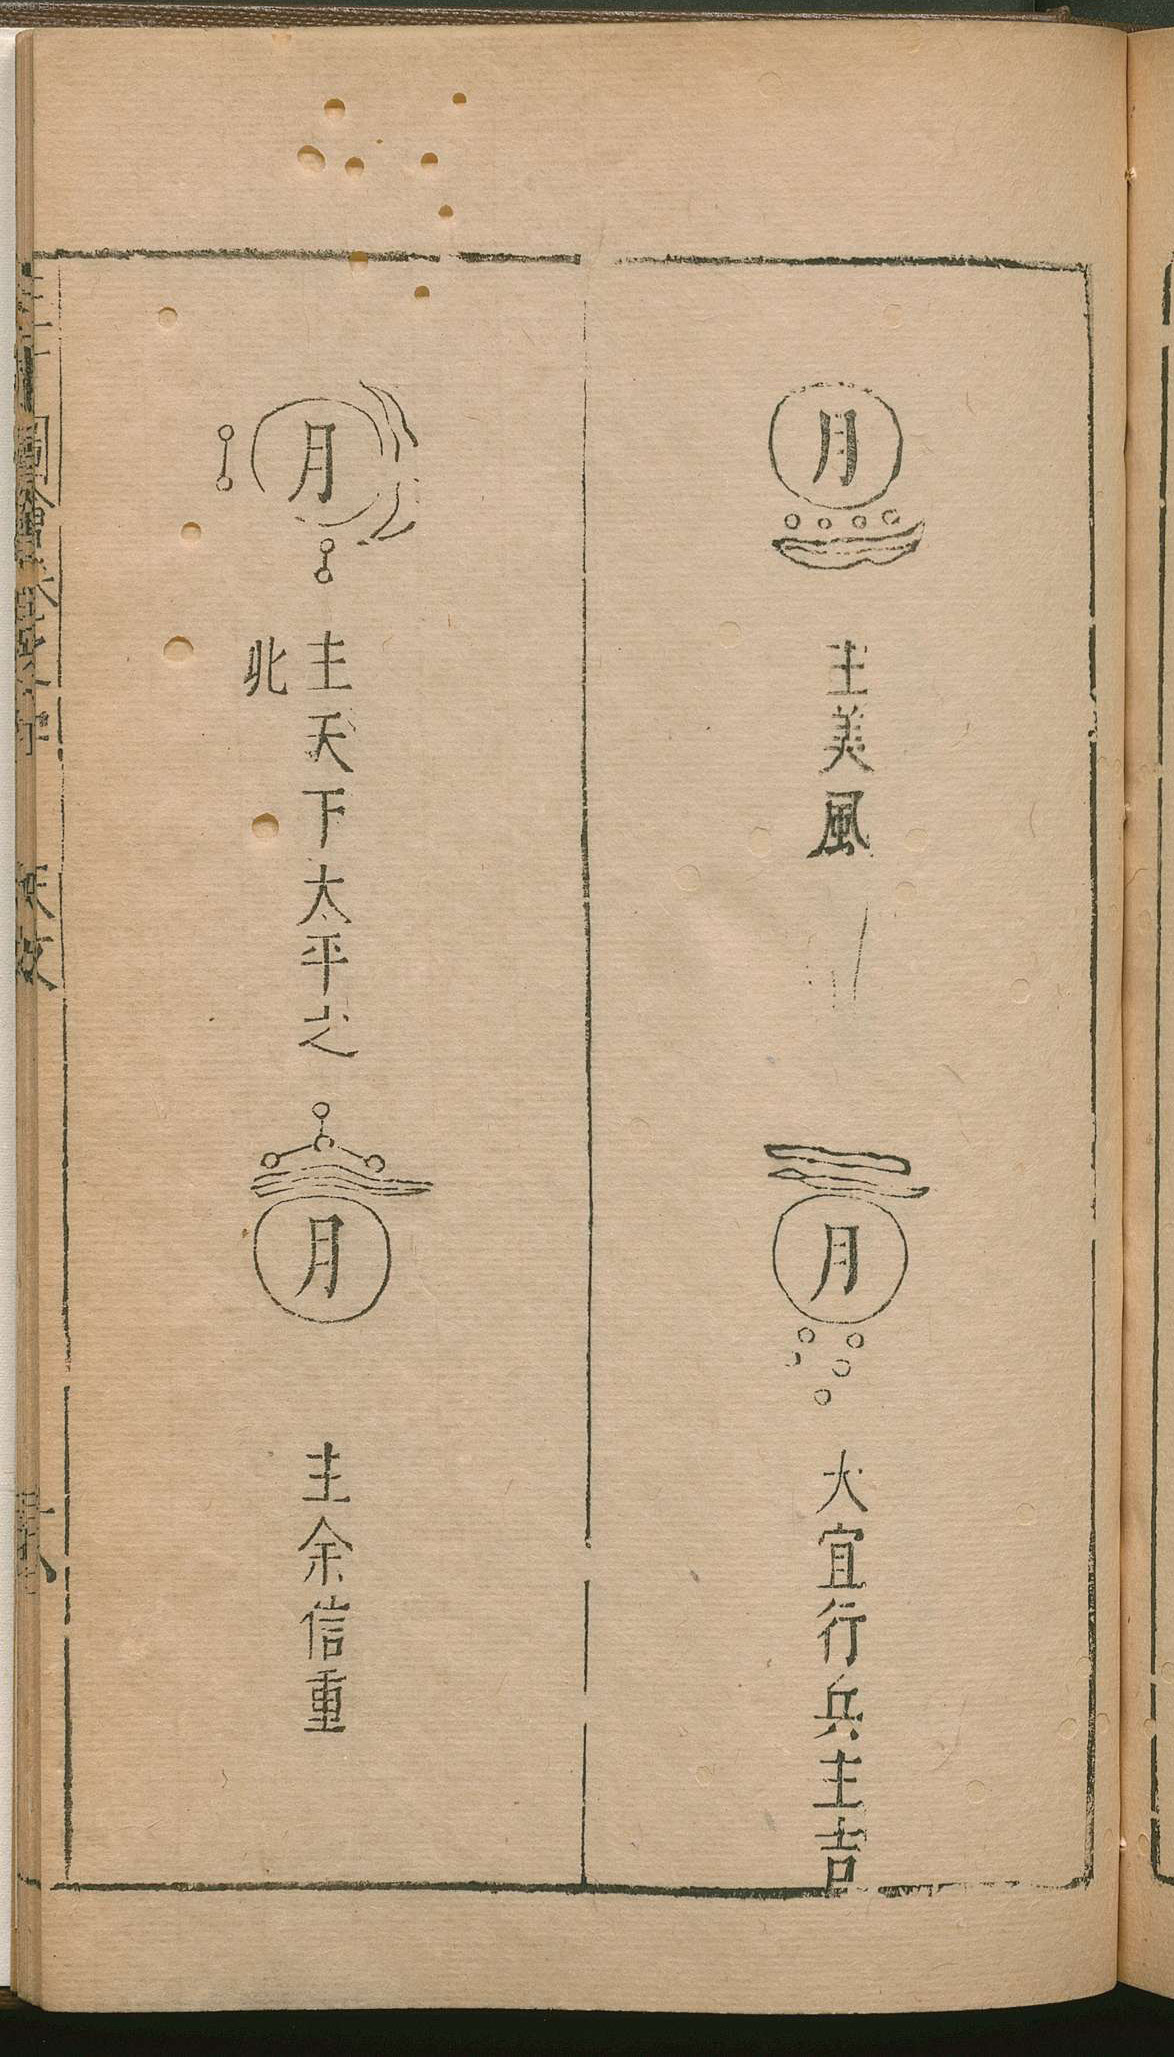 月
主美風
月
大宜行兵主吉
月
主天下太平之
兆
月
主余信重
天文